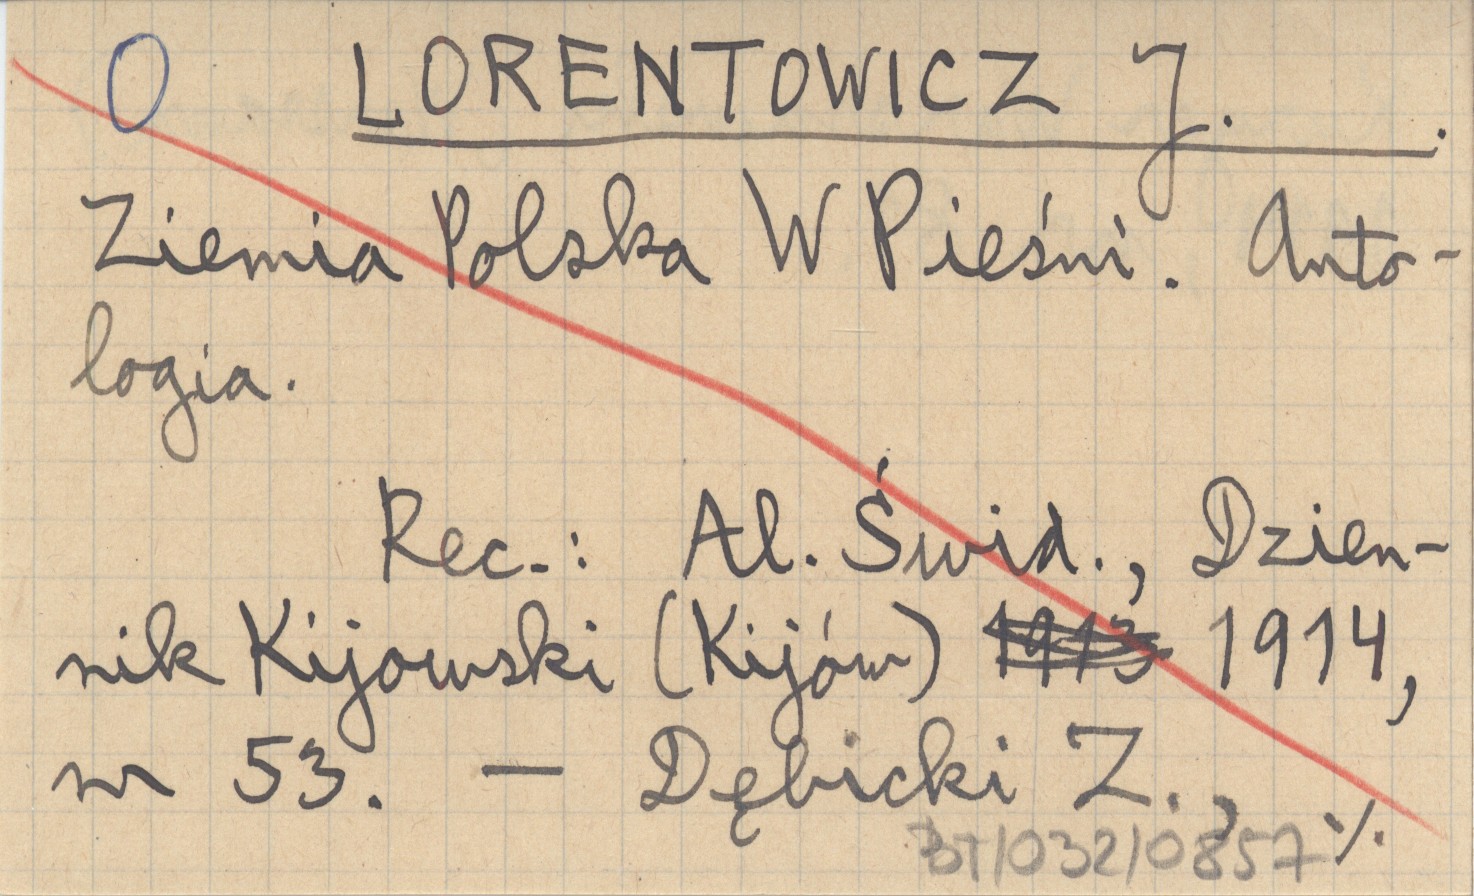 O LORENTOWICZ J.
Ziemia Polska W Pieśni. Anto-
logia.
Rec.: Al. Świd., Dzien-
nik Kijowski (Kijów) 1913 1914,
nr 53. — Dębicki Z., ./.
BT/032/0857